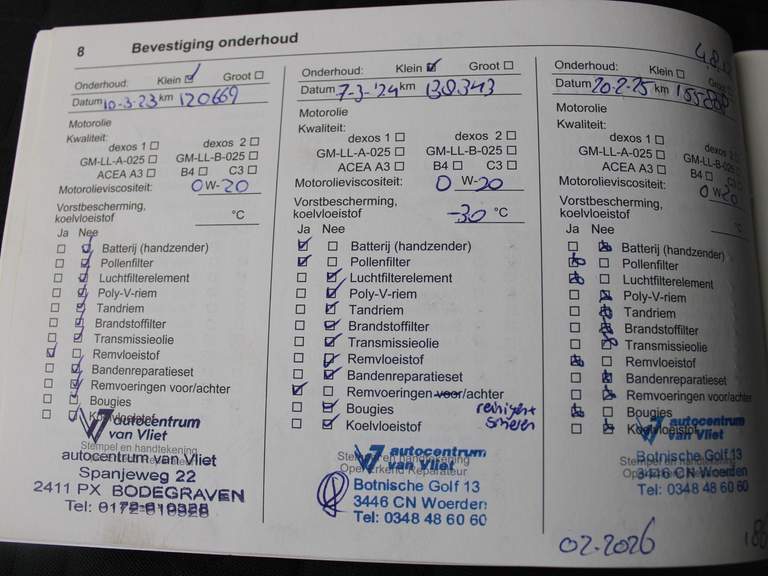 8 Bevestiging onderhoud
Onderhoud: Klein Groot
Datum 10-3-23 km 120669
Motorolie
Kwaliteit:
dexos 1 dexos 2
GM-LL-A-025 GM-LL-B-025
ACEA A3 B4 C3
Motorolieviscositeit: 0 W-20
Vorstbescherming,
koelvloeistof °C
Ja Nee
Batterij (handzender)
Pollenfilter
Luchtfilterelement
Poly-V-riem
Tandriem
Brandstoffilter
Transmissieolie
Remvloeistof
Bandenreparatieset
Remvoeringen voor/achter
Bougies
Koelvloeistof
autocentrum
van Vliet
Stempel en handtekening
autocentrum van Vliet
Spanjeweg 22
2411 PX BODEGRAVEN
Tel: 0172-610328
Onderhoud: Klein Groot
Datum 7-3-'24 km 138.343
Motorolie
Kwaliteit:
dexos 1 dexos 2
GM-LL-A-025 GM-LL-B-025
ACEA A3 B4 C3
Motorolieviscositeit: 0 W-20
Vorstbescherming,
koelvloeistof -30 °C
Ja Nee
Batterij (handzender)
Pollenfilter
Luchtfilterelement
Poly-V-riem
Tandriem
Brandstoffilter
Transmissieolie
Remvloeistof
Bandenreparatieset
Remvoeringen voor/achter
Bougies
Koelvloeistof
autocentrum
van Vliet
Stempel en handtekening
Opel Erkend Reparateur
Botnische Golf 13
3446 CN Woerden
Tel: 0348 48 60 60
Onderhoud: Klein
Datum 20-2-25 km
Motorolie
Kwaliteit:
dexos 1 dexos 2
GM-LL-A-025 GM-LL-B-025
ACEA A3 B4 C3
Motorolieviscositeit: 0 W-20
Vorstbescherming,
koelvloeistof °C
Ja Nee
Batterij (handzender)
Pollenfilter
Luchtfilterelement
Poly-V-riem
Tandriem
Brandstoffilter
Transmissieolie
Remvloeistof
Bandenreparatieset
Remvoeringen voor/achter
Bougies
Koelvloeistof
autocentrum
van Vliet
Botnische Golf 13
3446 CN Woerden
Tel: 0348 48 60 60
02-2026